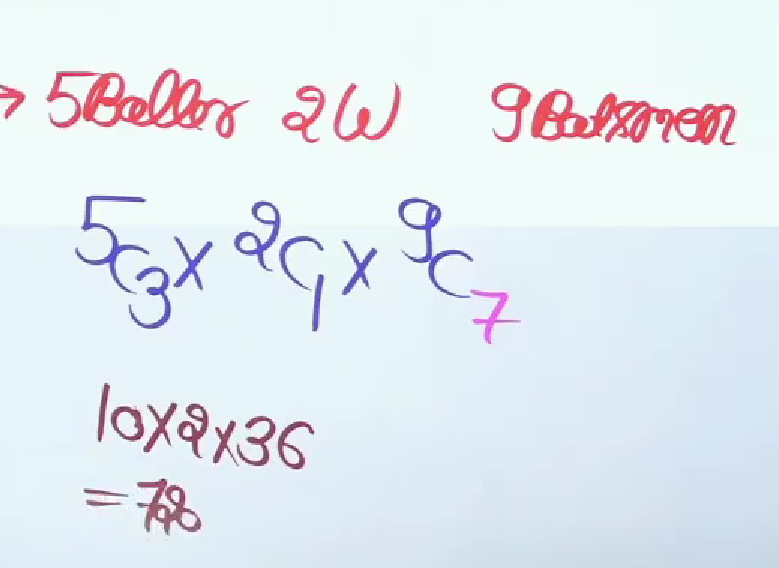 → 5Baller 2W 9Batsmen
⁵C₃ × ²C₁ × ⁹C₇
10×2×36
= 720